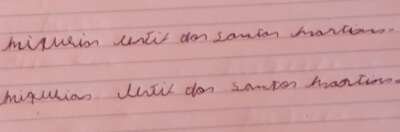 miqueias lentil dos santos martins.
miqueias lentil dos santos martins.